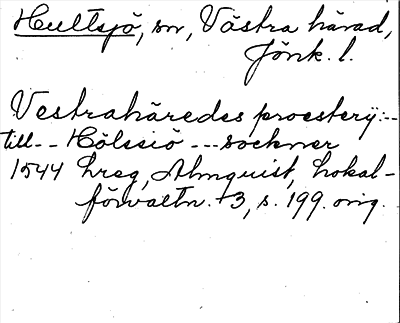 Hultsjö, sn, Västra härad,
Jönk. l.
Vestrahäredes proestery: --
till -- Hölssiö --- sockner
1544 Lreg, Almquist, Lokal-
förvaltn. +3, s. 199. orig.